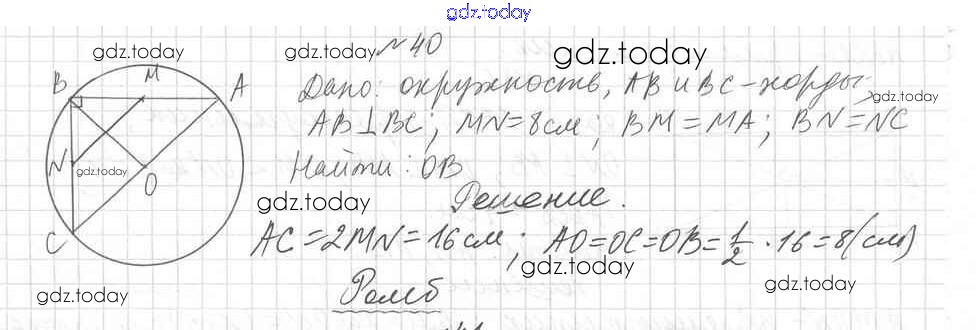 gdz.today
gdz.today gdz.today №40 gdz.today
B M A Дано: окружность, AB и BC - хорды; gdz.today
AB⊥BC; MN=8см; BM=MA; BN=NC
N gdz.today O Найти: OB
gdz.today Решение.
C AC=2MN=16см; AO=OC=OB=1/2·16=8(см)
gdz.today gdz.today
gdz.today Ромб